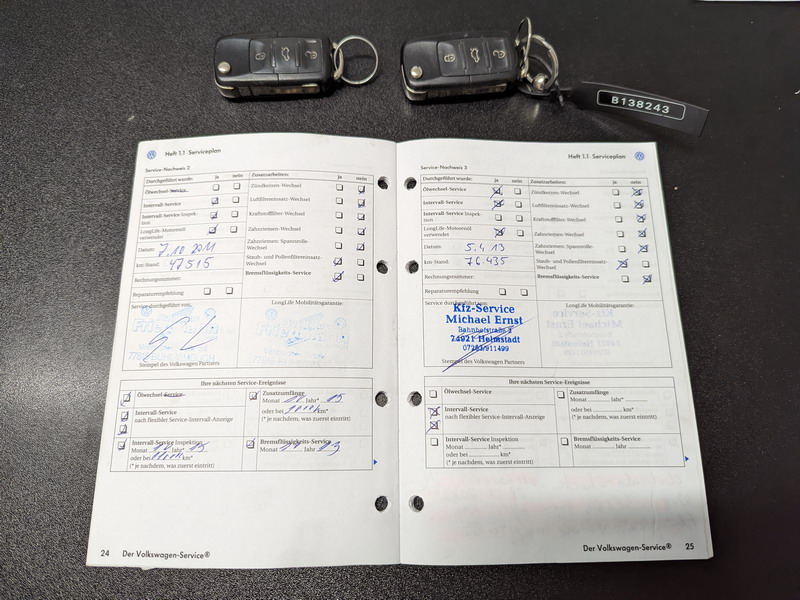 B138243
Heft 1.1 Serviceplan
Service-Nachweis 2
Durchgeführt wurde: ja nein
Ölwechsel-Service
Intervall-Service
Intervall-Service Inspek-
tion
LongLife-Motorenöl
verwendet
Datum: 7.10 2011
km-Stand: 47515
Rechnungsnummer:
Reparaturempfehlung
Zusatzarbeiten: ja nein
Zündkerzen-Wechsel
Luftfiltereinsatz-Wechsel
Kraftstofffilter-Wechsel
Zahnriemen-Wechsel
Zahnriemen- Spannrolle-
Wechsel
Staub- und Pollenfiltereinsatz-
Wechsel
Bremsflüssigkeits-Service
Service durchgeführt von:
LongLife Mobilitätsgarantie:
Stempel des Volkswagen Partners
Ihre nächsten Service-Ereignisse
Ölwechsel-Service
Intervall-Service
nach flexibler Service-Intervall-Anzeige
Intervall-Service Inspektion
Monat Jahr*
oder bei km*
(* je nachdem, was zuerst eintritt)
Zusatzumfänge
Monat Jahr*
oder bei km*
(* je nachdem, was zuerst eintritt)
Bremsflüssigkeits-Service
Monat Jahr
24 Der Volkswagen-Service®
Heft 1.1 Serviceplan
Service-Nachweis 3
Durchgeführt wurde: ja nein
Ölwechsel-Service
Intervall-Service
Intervall-Service Inspek-
tion
LongLife-Motorenöl
verwendet
Datum: 5.4.13
km-Stand: 76.435
Rechnungsnummer:
Reparaturempfehlung
Zusatzarbeiten: ja nein
Zündkerzen-Wechsel
Luftfiltereinsatz-Wechsel
Kraftstofffilter-Wechsel
Zahnriemen-Wechsel
Zahnriemen- Spannrolle-
Wechsel
Staub- und Pollenfiltereinsatz-
Wechsel
Bremsflüssigkeits-Service
Service durchgeführt von:
Kfz-Service
Michael Ernst
Bahnhofstraße 3
74921 Helmstadt
07263/911499
Stempel des Volkswagen Partners
LongLife Mobilitätsgarantie:
Ihre nächsten Service-Ereignisse
Ölwechsel-Service
Intervall-Service
nach flexibler Service-Intervall-Anzeige
Intervall-Service Inspektion
Monat Jahr*
oder bei km*
(* je nachdem, was zuerst eintritt)
Zusatzumfänge
Monat Jahr*
oder bei km*
(* je nachdem, was zuerst eintritt)
Bremsflüssigkeits-Service
Monat Jahr
Der Volkswagen-Service® 25